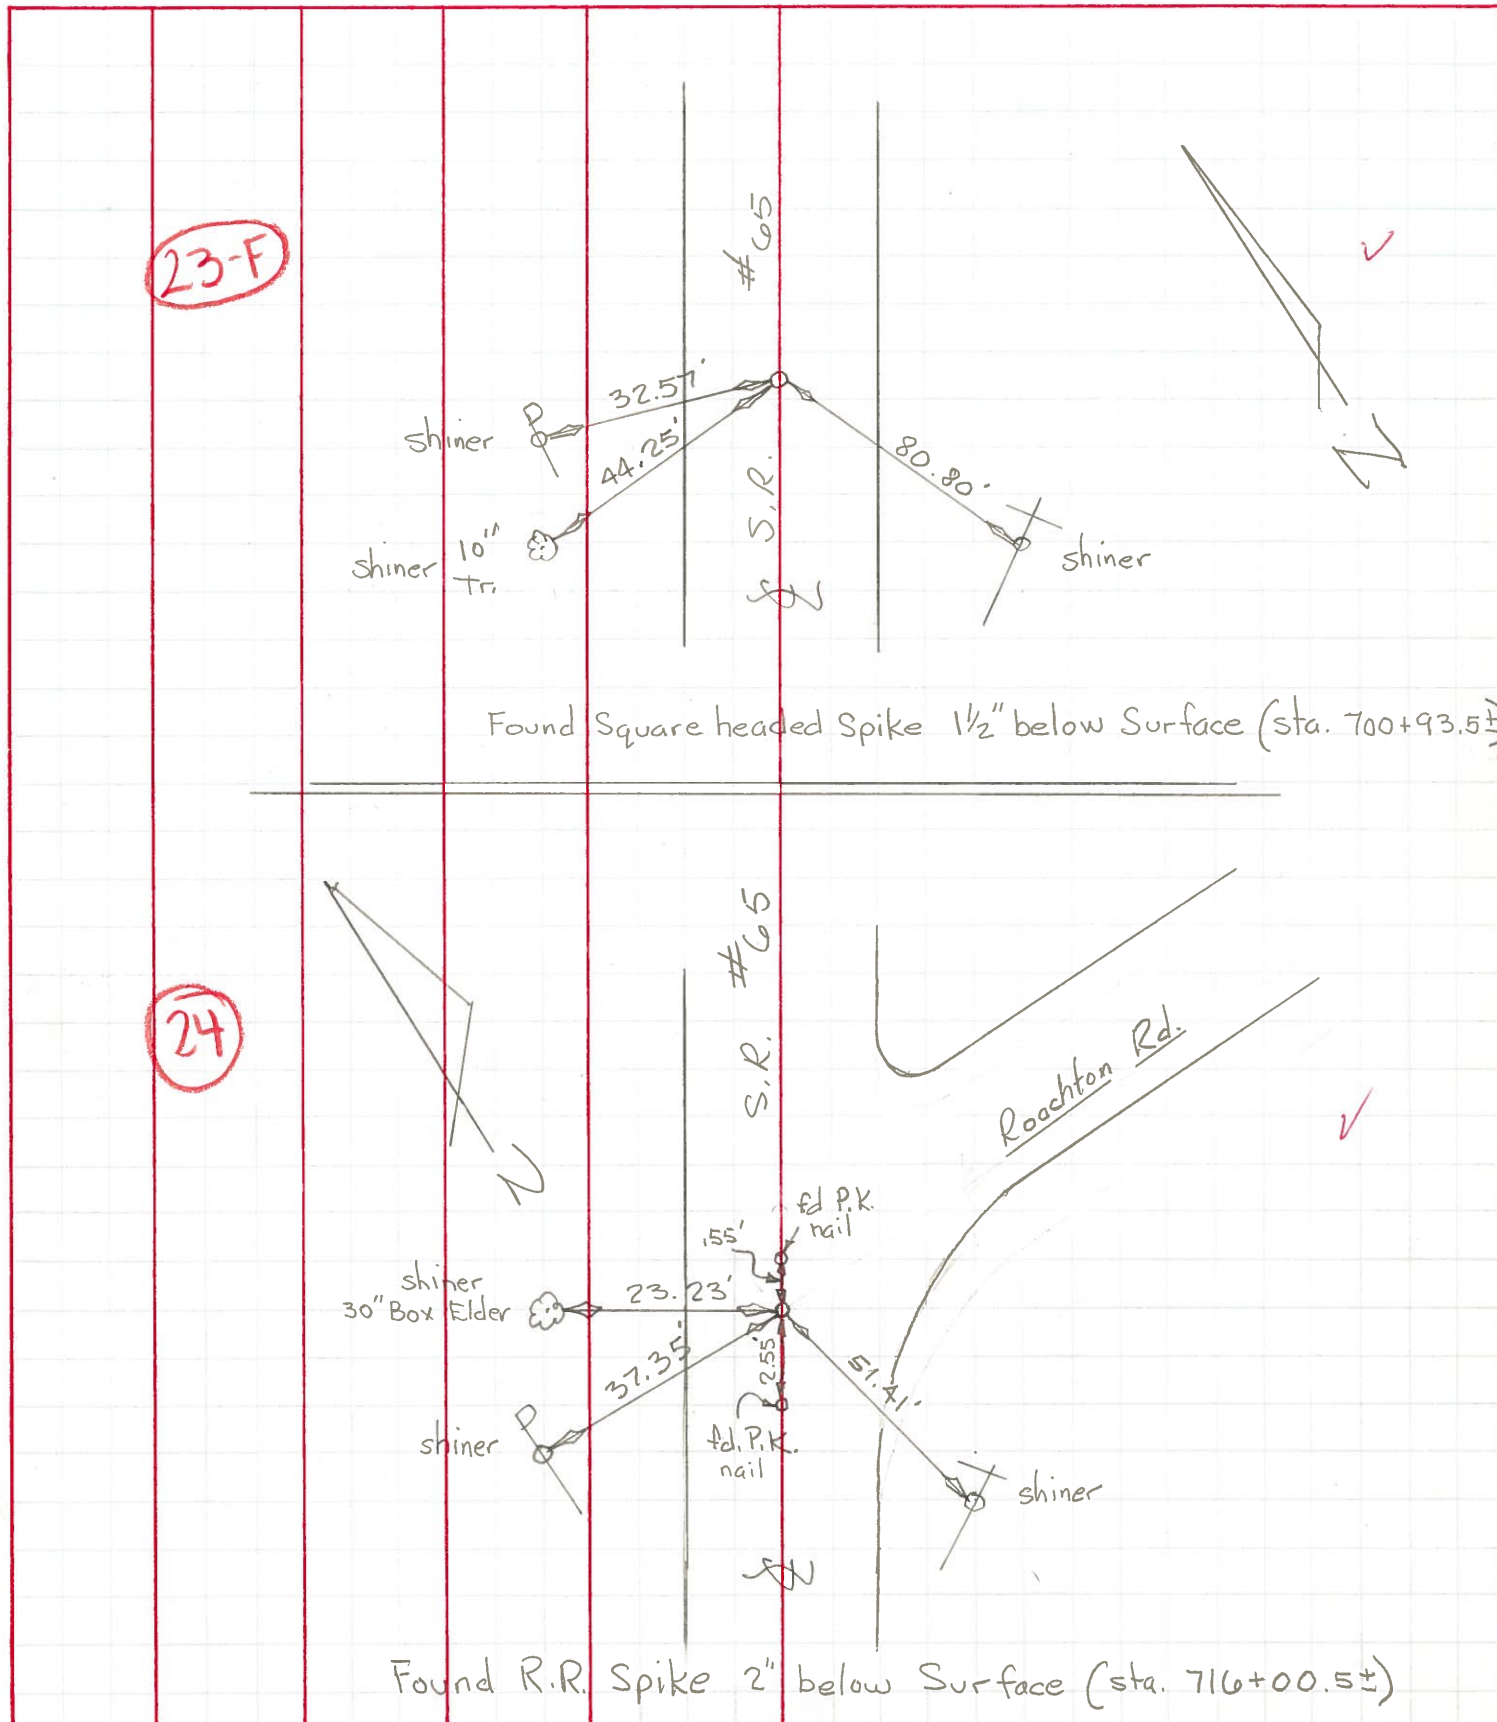 23-F
# 65
32.57'
shiner
44.25'
80.80'
S.R.
shiner 10"
Tr.
shiner
℄
Found Square headed Spike 1½" below Surface (sta. 700+93.5±)
N
# 65
24
S.R.
Roachton Rd.
N
fd P.K.
nail
.55'
shiner
30" Box Elder
23.23'
37.35'
2.55'
51.41'
shiner
fd. P.K.
nail
shiner
℄
Found R.R. Spike 2" below Surface (sta. 716+00.5±)